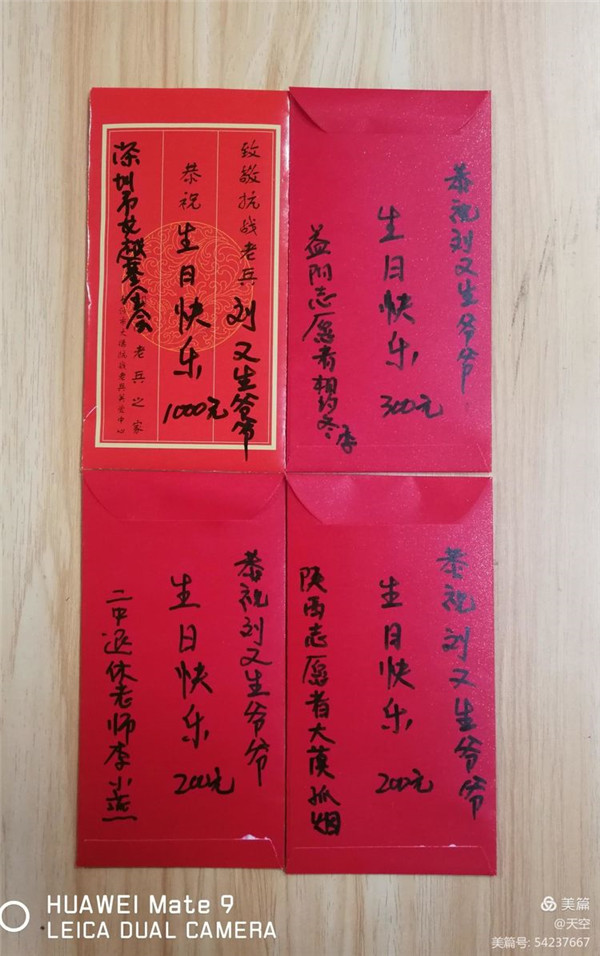 致敬抗战老兵刘又生爷爷
恭祝生日快乐
1000元
老兵之家
恭祝刘又生爷爷
生日快乐
300元
益阳志愿者相约冬季
恭祝刘又生爷爷
生日快乐
200元
二中退休老师李小燕
恭祝刘又生爷爷
生日快乐
200元
陕西志愿者大漠孤烟
HUAWEI Mate 9
LEICA DUAL CAMERA
美篇
@天空
美篇号: 54237667